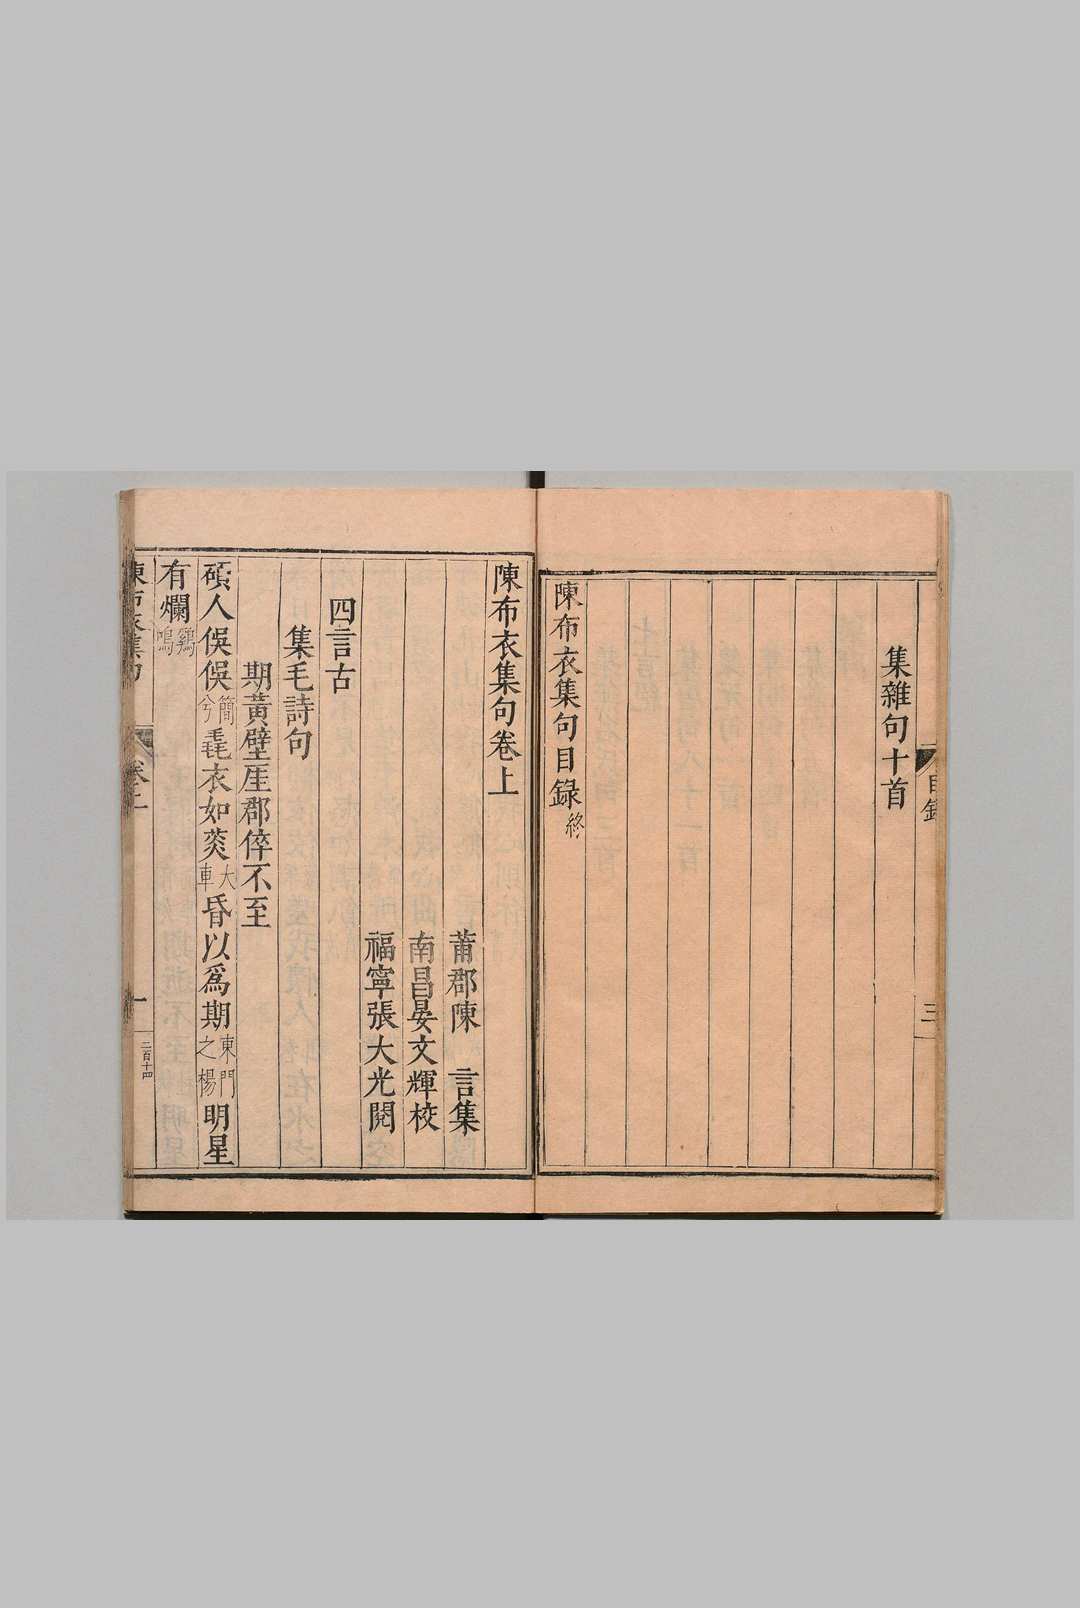 集雜句十首
陳布衣集句目錄終
目錄
三
陳布衣集句卷上
莆郡陳　言集
南昌晏文輝校
福寧張大光閱
四言古
集毛詩句
期黃壁厓郡倅不至
碩人俁俁簡兮毳衣如菼大車昏以爲期東門之楊明星
有爛雞鳴
陳布衣集句
卷上
一
二百十四